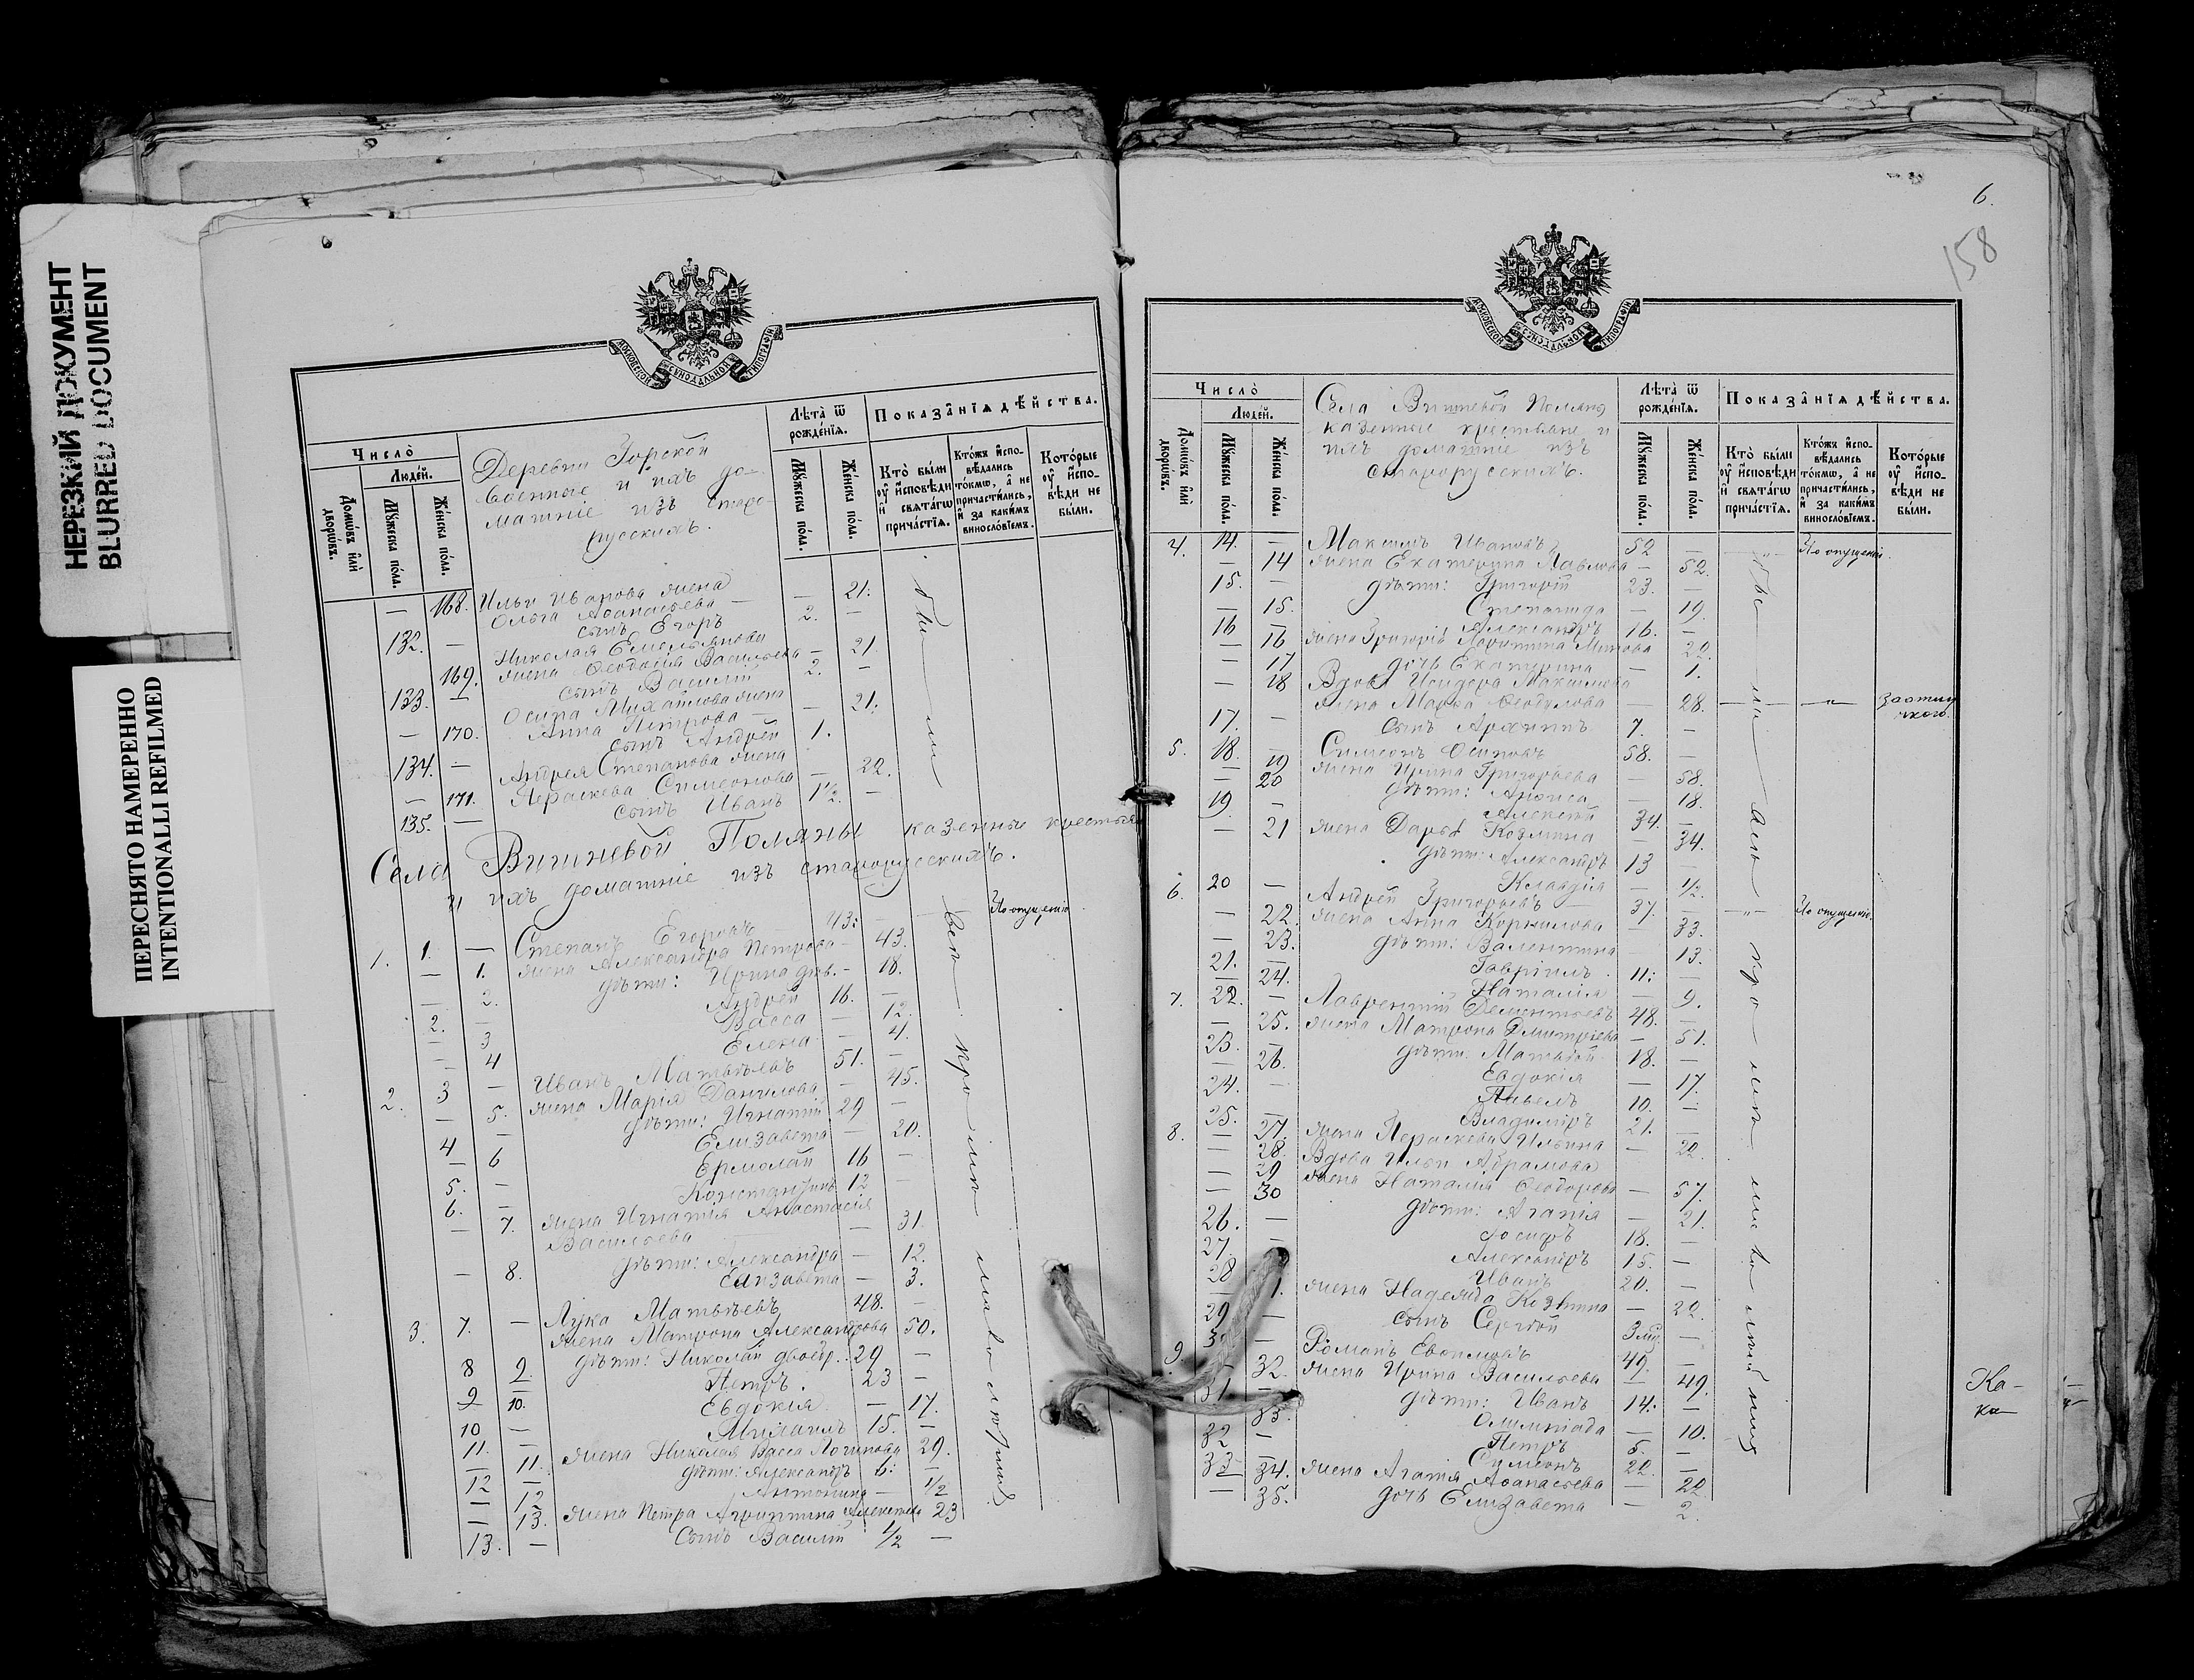 НЕРЕЗКИЙ ДОКУМЕНТ
BLURRED DOCUMENT
ПЕРЕСНЯТО НАМЕРЕННО
INTENTIONALLI REFILMED
МОСКОВСКОЙ СѴНОДАЛЬНОЙ ТИПОГРАФІИ
Число̀
Людéй.
Домѡ́въ и҆лѝ дворѡ́въ.
Мꙋ́жеска по́ла.
Же́нска по́ла.
Деревни Горской
военные и ихъ до-
машніе изъ старо-
русскихъ.
Лѣ́та ѿ рожде́нїѧ.
Мꙋ́жеска по́ла.
Же́нска по́ла.
Показа̑нїѧ дѣ́йства.
Кто̀ бы́ли ᲂу҆ и҆сповѣ́ди и҆ свѧта́гѡ прича́стїѧ.
Кто́жъ и҆сповѣ́дались то́кмѡ, а҆ не причасти́лись, и҆ за каки́мъ винослόвїемъ.
Кото́рые ᲂу҆ и҆сповѣ́ди не бы́ли.
— 168. Ильи Иванова жена
Ольга Аѳанасьева — — 21.
132. — сынъ Егоръ 2. —
Николая Емельянова
169. жена Ѳеодосія Васильева — 21
133. — сынъ Василій 2. —
Осипа Михайлова жена
— 170. Анна Петрова — — 21.
134. — сынъ Андрей 1.
Андрея Степанова жена
— 171. Параскева Симеонова — 22.
135. — сынъ Иванъ 1/2. —
бы — ли
Села Вишневой Поляны казенные крестьяне
и ихъ домашніе изъ старорусскихъ.
1. 1. — Степанъ Егоровъ 43. — По опущенію
— 1. жена Александра Петрова — 43.
— 2. дѣти: Ирина дѣв. — 18.
2. — Андрей 16. —
— 3 Васса — 12.
— 4 Елена — 4.
2. 3 — Иванъ Матвѣевъ 51. —
— 5. жена Марія Данилова — 45.
4 — дѣти: Игнатій 29 —
— 6 Елизавета — 20.
5. — Ермолай 16 —
6. — Константинъ 12 —
— 7. жена Игнатія Анастасія
Васильева — 31
— 8. дѣти: Александра — 12.
Елизавета — 3.
3. 7. — Лука Матвѣевъ 48. —
жена Матрона Александрова 50.
8 9. дѣти: Николай двоедр. 29 —
9 10. Петръ. 23 —
10 — Евдокія — 17.
11. — Михаилъ 15. —
11. жена Николая Васса Логинова 29.
12 — дѣти: Александръ 6. —
— 12 Антонина — 1/2
— 13. жена Петра Агриппина Алексѣева 23
13. — сынъ Василій 1/2 —
6.
158
МОСКОВСКОЙ СѴНОДАЛЬНОЙ ТИПОГРАФІИ
Число̀
Людéй.
Домѡ́въ и҆лѝ дворѡ́въ.
Мꙋ́жеска по́ла.
Же́нска по́ла.
Села Вишневой Поляны
казенные крестьяне и
ихъ домашніе изъ
старорусскихъ.
Лѣ́та ѿ рожде́нїѧ.
Мꙋ́жеска по́ла.
Же́нска по́ла.
Показа̑нїѧ дѣ́йства.
Кто̀ бы́ли ᲂу҆ и҆сповѣ́ди и҆ свѧта́гѡ прича́стїѧ.
Кто́жъ и҆сповѣ́дались то́кмѡ, а҆ не причасти́лись, и҆ за каки́мъ винослόвїемъ.
Кото́рые ᲂу҆ и҆сповѣ́ди не бы́ли.
4. 14. — Максимъ Ивановъ 52 — По опущенію.
— 14 жена Екатерина Павлова — 52.
15. — дѣти: Григорій 23. —
— 15. Степанида — 19.
16 — Александръ 16. —
16 жена Григорія 22.
— 17 дочь Екатерина — 1.
— 18 Вдова Исидора Максимова
жена Марѳа Ѳеодулова — 28.
17. — сынъ Архиппъ 7. —
5. 18. — Симеонъ Осиповъ 58. —
19 жена Ирина Григорьева — 58.
— 20 дѣти: Анѳиса — 18.
19 — Алексѣй 34. —
— 21 жена Дарья Козмина — 34.
дѣти: Александръ 13 —
Клавдія — 1/2.
6. 20 — Андрей Григорьевъ — 37. — По опущенію.
— 22. жена Анна Корнилова — 33.
— 23. дѣти: Валентина — 13.
21. — Гавріилъ 11. —
24. Наталія — 9.
7. 22. — Лаврентій Дементьевъ 48. —
— 25. жена Матрона Дмитріева — 51.
23. — дѣти: Матвѣй 18. —
— 26. Евдокія — 17.
24. — Павелъ 10. —
25. — Владиміръ 21. —
8. 27. жена Параскева Ильина — 22.
— 28. Вдова Ильи Абрамова
— 29 жена Наталія Ѳеодорова — 57.
— 30 дѣти: Агапія — 21.
26. — Іосифъ 18. —
27 — Александръ 15. —
28 Иванъ 20. —
жена Надежда Козмина — 22.
29 — сынъ Сергѣй
9. Романъ Евѳимовъ 49. —
32. жена Ирина Васильева — 49.
31 — дѣти: Иванъ 14. —
33. Олимпіада — 10.
32 — Петръ 5. —
33 — Симеонъ 22. —
34. жена Агапія Аѳанасьева — 22.
— 35. дочь Елизавета — 2.
Ка-
ка-